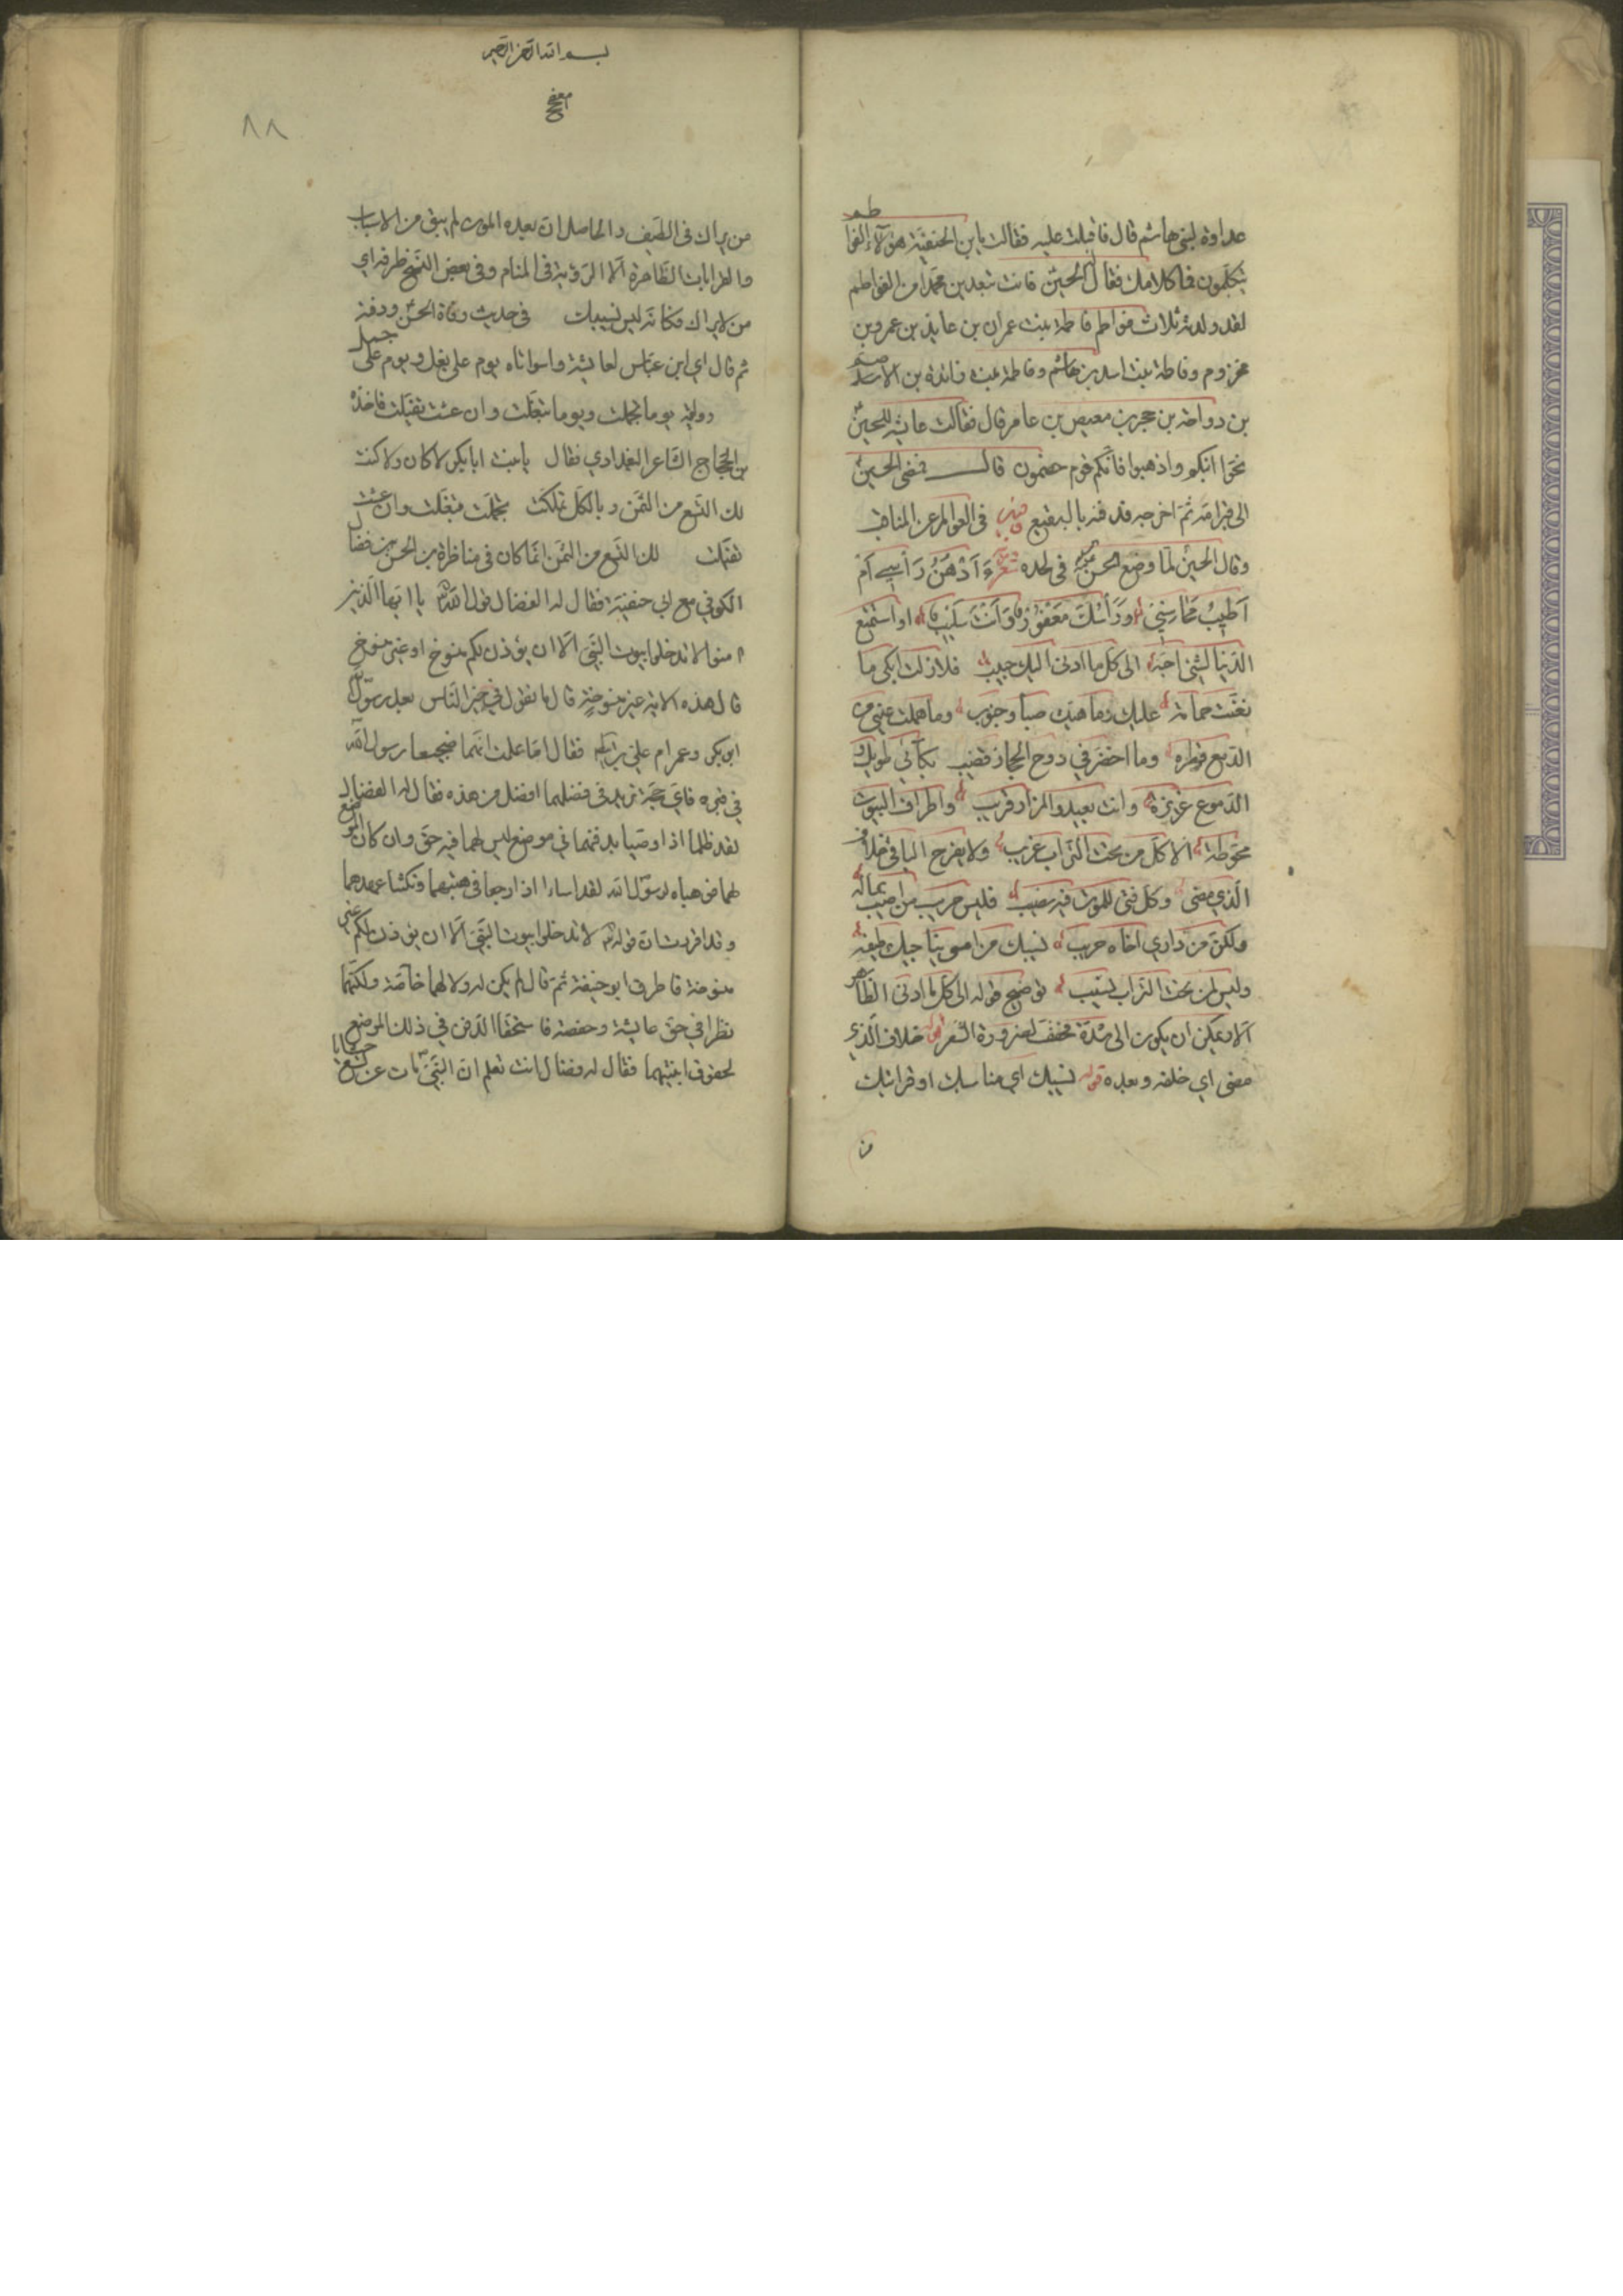 عداوة لبني هاشم قال فاقبلت عليه فقالت يابن الحنفية هؤلاء الفواطم
يتكلمون فما كلامك فقال الحسين فانت تبعدين محمدا من الفواطم
لقد ولدته ثلاث فواطم فاطمة بنت عمران بن عايذ بن عمرو بن
مخزوم وفاطمة بنت اسد بن هاشم وفاطمة بنت زائدة بن الاصم
بن رواحة بن حجر بن معيص بن عامر قال فقالت عايشة للحسين
نحوا ابنكم واذهبوا فانكم قوم خصمون قال فمضى الحسين
الى قبر امه ثم اخرجه فدفنه بالبقيع في العوالم عن المناقب
وقال الحسين لما وضع الحسن في لحده شعر ءَاَدْهَنُ رَأسِي اَمْ
اَطِيبُ مَحَاسِنِي وَرَأسُكَ مَعْفُورٌ وَاَنْتَ سَلِيْبٌ او استمتع
الدنيا لشئ احبه الى كل ما ادنى اليك حبيب فلا زلت ابكي ما
تغنت حمامة عليك وما هبت صبا وجنوب وما هملت عيني من
الدمع قطرة وما اخضر في دوح الحجاز قضيب بكائي طويل و
الدموع غزيرة وانت بعيد والمزار قريب واطراف البيوت
محوطة الا كل من تحت التراب غريب ولا يفرح الباقي خلاف
الذي مضى وكل فتى للموت فيه نصيب فليس حريب من اصيب بماله
ولكن من وارى اخاه حريب نسيبك من امسى يناجيك طيفه
وليس لمن تحت التراب نسيب توضيح قوله الى كل ما ادنى الظاهر
الا ويمكن ان يكون الى مشددة مخفف لضرورة الشعر قوله خلاف الذي
مضى اي خلفه وبعده قوله نسيبك اي مناسبك او قرابتك
من
٨٨
من يراك في الطيف والحاصل ان بعده الموت لم يبق من الاسباب
والقرابات الظاهرة الا الرؤية في المنام وفي بعض النسخ طرفه اي
من لا يراك فكانه ليس نسيبك في حديث وفاة الحسن ودفنه
ثم قال اي ابن عباس لعايشة واسواتاه يوم على بغل ويوم على جمل
وفي رواية يوما تجملت ويوما تبغلت وان عشت تفيلت فاخذه
بن الحجاج الشاعر البغدادي فقال يا بنت ابا بكر لا كان ولا كنت
لك التسع من الثمن وبالكل تملكت تجملت تبغلت وان عشت
تفيلت لك التسع من الثمن انما كان في مناظرة بن الحسن بن فضال
الكوفي مع ابي حنفية فقال له الفضال قول الله يا ايها الذين
امنوا لا تدخلوا بيوت النبي الا ان يؤذن لكم منسوخ او غير منسوخ
قال هذه الاية غير منسوخة قال ما تقول في خير الناس بعد رسول الله
ابو بكر وعمر ام علي فقال اما علمت انهما ضجيعا رسول الله
في قبره فاي حجة تريد في فضلهما افضل من هذه فقال له الفضال
لقد ظلما اذا اوصيا بدفنهما في موضع ليس لهما فيه حق وان كان الموضع
لهما فوهباه لرسول الله لقد اساءا اذا رجعا في هبتهما ونكثا عهدهما
وقد اقررت ان قوله لا تدخلوا بيوت النبي الا ان يؤذن لكم غير
منسوخة فاطرق ابو حنيفة ثم قال لم يكن له ولا لهما خاصة ولكنهما
نظرا في حق عايشة وحفصة فاستحقا الدفن في ذلك الموضع
لحقوق ابنتيهما فقال له فضال انت تعلم ان النبي مات عن تسع حشايا